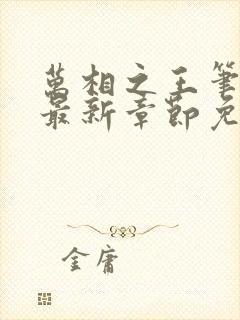 萬相之王筆
最新章節免
金庸